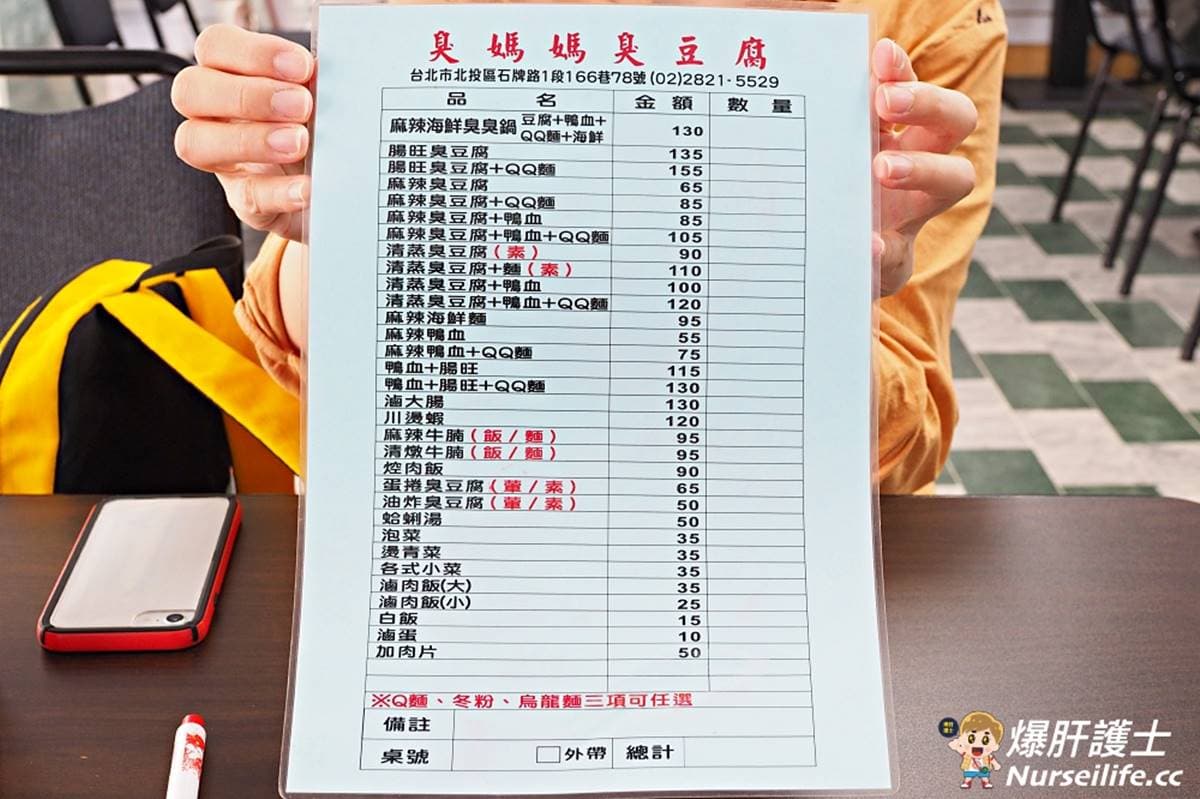 臭媽媽臭豆腐
台北市北投區石牌路1段166巷78號(02)2821-5529
品名 金額 數量
麻辣海鮮臭臭鍋 豆腐+鴨血+QQ麵+海鮮 130
腸旺臭豆腐 135
腸旺臭豆腐+QQ麵 155
麻辣臭豆腐 65
麻辣臭豆腐+QQ麵 85
麻辣臭豆腐+鴨血 85
麻辣臭豆腐+鴨血+QQ麵 105
清蒸臭豆腐(素) 90
清蒸臭豆腐+麵(素) 110
清蒸臭豆腐+鴨血 100
清蒸臭豆腐+鴨血+QQ麵 120
麻辣海鮮麵 95
麻辣鴨血 55
麻辣鴨血+QQ麵 75
鴨血+腸旺 115
鴨血+腸旺+QQ麵 130
滷大腸 130
川燙蝦 120
麻辣牛腩(飯/麵) 95
清燉牛腩(飯/麵) 95
焢肉飯 90
蛋捲臭豆腐(葷/素) 65
油炸臭豆腐(葷/素) 50
蛤蜊湯 50
泡菜 35
燙青菜 35
各式小菜 35
滷肉飯(大) 35
滷肉飯(小) 25
白飯 15
滷蛋 10
加肉片 50
※Q麵、冬粉、烏龍麵三項可任選
備註
桌號 □外帶 總計
爆肝護士
Nurseilife.cc